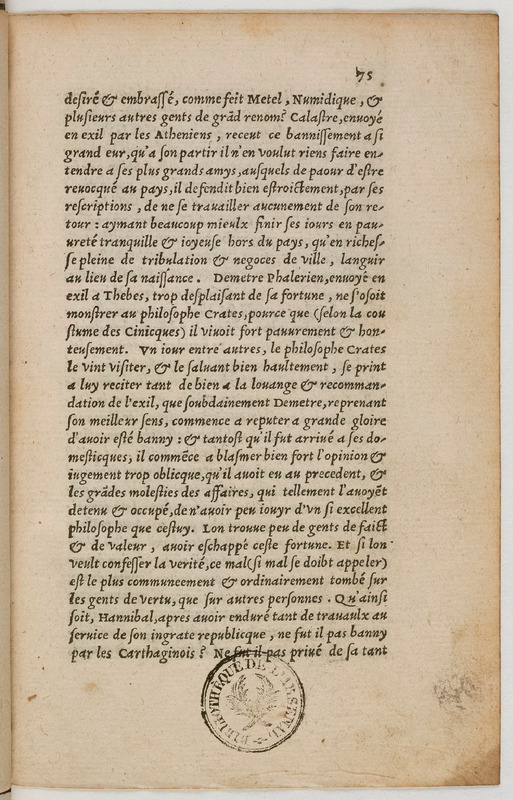 75
desiré & embrassé, comme feit Metel, Numidique, &
plusieurs autres gents de grãd renom? Calastre, enuoyé
en exil par les Atheniens, receut ce bannissement a si
grand eur, qu'a son partir il n'en voulut riens faire en-
tendre a ses plus grands amys, ausquels de paour d'estre
reuocqué au pays, il defendit bien estroictement, par ses
rescriptions, de ne se trauailler aucunement de son re-
tour : aymant beaucoup mieulx finir ses iours en pau-
ureté tranquille & ioyeuse hors du pays, qu'en riches-
se pleine de tribulation & negoces de ville, languir
au lieu de sa naissance. Demetre Phalerien, enuoyé en
exil a Thebes, trop desplaisant de sa fortune, ne s'osoit
monstrer au philosophe Crates, pource que (selon la cou
stume des Cinicques) il viuoit fort pauurement & hon-
teusement. Vn iour entre autres, le philosophe Crates
le vint visiter, & le saluant bien haultement, se print
a luy reciter tant de bien a la louange & recomman-
dation de l'exil, que soubdainement Demetre, reprenant
son meilleur sens, commence a reputer a grande gloire
d'auoir esté banny : & tantost qu'il fut arriué a ses do-
mesticques, il commẽce a blasmer bien fort l'opinion &
iugement trop oblicque, qu'il auoit eu au precedent, &
les grãdes molesties des affaires, qui tellement l'auoyẽt
detenu & occupé, de n'auoir peu iouyr d'vn si excellent
philosophe que cestuy. Lon trouue peu de gents de faict
& de valeur, auoir eschappé ceste fortune. Et si lon
veult confesser la verité, ce mal (si mal se doibt appeler)
est le plus communeement & ordinairement tombé sur
les gents de vertu, que sur autres personnes. Qu'ainsi
soit, Hannibal, apres auoir enduré tant de trauaulx au
seruice de son ingrate republicque, ne fut il pas banny
par les Carthaginois? Ne fut il pas priué de sa tant
BIBLIOTHÈQUE DE L'ARSENAL